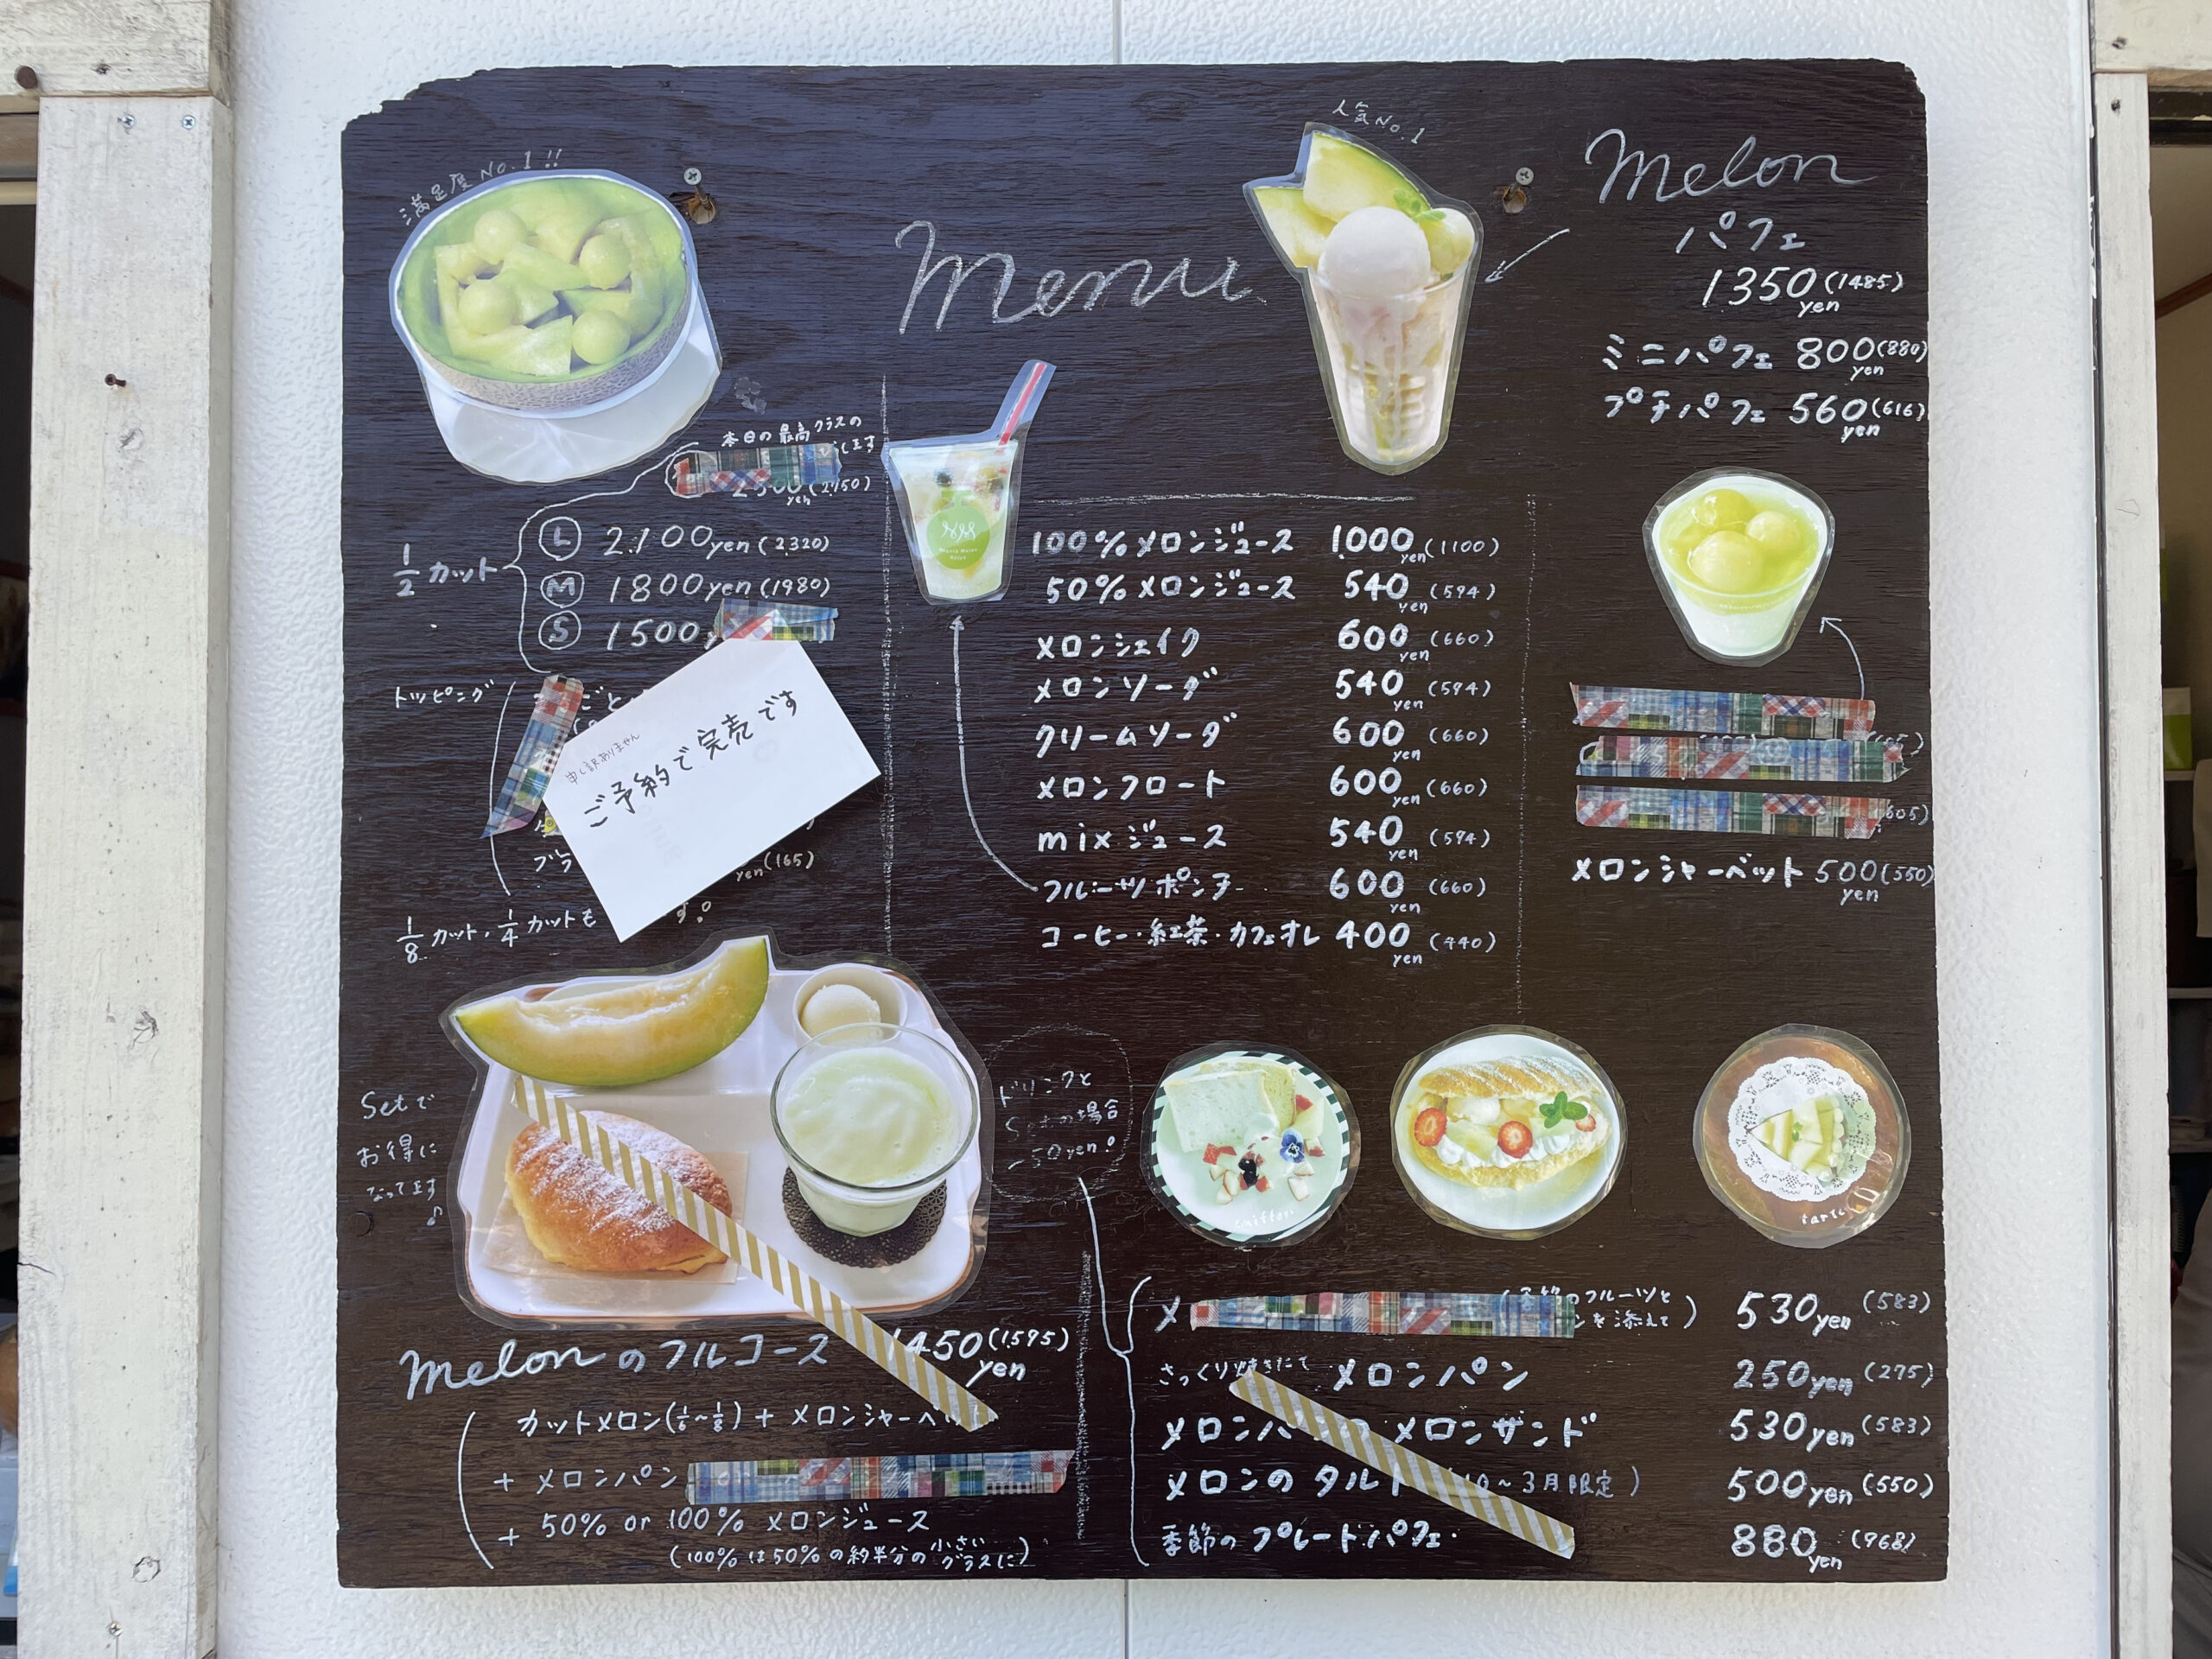 満足度 No.1!!
Menu
人気No.1
Melon
パフェ
1350(1485)
yen
ミニパフェ 800(880)
yen
プチパフェ 560(616)
yen
本日の最高クラスの
します
(2750)
yen
1/2 カット
L 2,100yen(2,320)
M 1800yen(1980)
S 1500
トッピング
申し訳ありません
ご予約で完売です
yen(165)
1/8 カット・1/4 カットも
す。
100%メロンジュース 1000yen(1100)
50%メロンジュース 540yen(594)
メロンシェイク 600yen(660)
メロンソーダ 540yen(594)
クリームソーダ 600yen(660)
メロンフロート 600yen(660)
mixジュース 540yen(594)
フルーツポンチ 600yen(660)
コーヒー・紅茶・カフェオレ 400yen(440)
605)
メロンシャーベット 500(550)
yen
Setで
お得に
なってます♪
ドリンクと
Setの場合
-50yen!
Melonのフルコース 1450(1595)
yen
カットメロン(1/6~1/8)+メロンシャーベ
+ メロンパン
+ 50% or 100% メロンジュース
(100%は50%の約半分の小さいグラスに)
tart
メ
フルーツと
を添えて) 530yen(583)
さっくり焼きたて メロンパン 250yen(275)
メロンパ メロンサンド 530yen(583)
メロンのタルト 10~3月限定) 500yen(550)
季節のプレートパフェ 880yen(968)